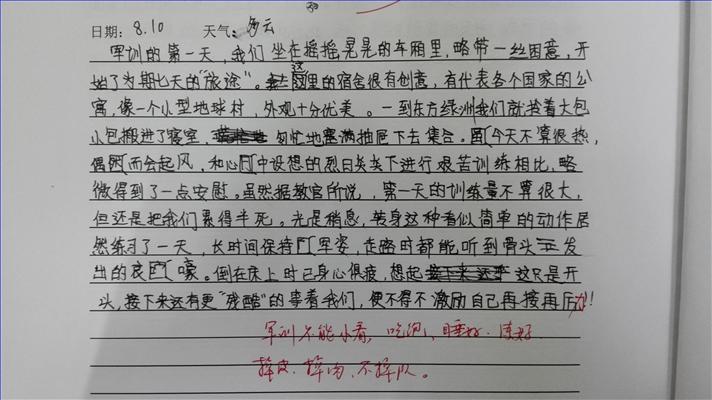 日期：8.10 天气：多云
军训的第一天，我们坐在摇摇晃晃的车厢里，略带一丝困意，开
始了为期七天的"旅途"。这里的宿舍很有创意，有代表各个国家的公
寓，像一个小型地球村，外观十分优美。一到东方绿洲我们就拎着大包
小包搬进了寝室，匆忙地塞满抽屉下去集合。今天不算很热，
偶而会起风，和心中设想的烈日炎炎下进行艰苦训练相比，略
微得到了一点安慰。虽然据教官所说，第一天的训练量不算很大，
但还是把我们累得半死。光是稍息，转身这种看似简单的动作居
然练习了一天，长时间保持军姿，走路时都能听到骨头正发
出的哀嚎。倒在床上时已身心俱疲，想起这只是开
头，接下来还有更"残酷"的事着我们，便不得不激励自己再接再厉！
军训不能小看，吃饱、睡好、
掉皮、掉肉、不掉队。